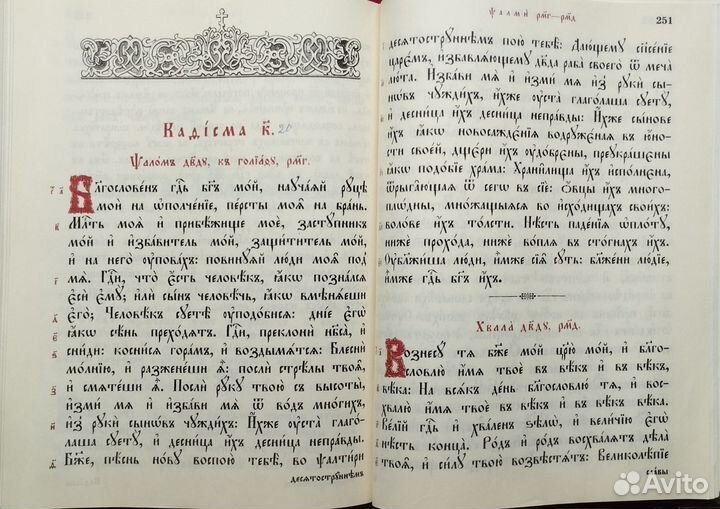 Каѳі́сма к҃.
20
Ѱало́мъ дв҃ду, къ голїа́ѳу, рм҃г.
Бл҃гослове́нъ гдⷭ҇ь бг҃ъ мо́й, науча́ѧй ру́цѣ
мои̑ на ѡ҆полче́нїе, пе́рсты моѧ̑ на бра́нь.
Мл҇ть моѧ̀ и҆ прибѣ́жище моѐ, засту́пникъ
мо́й и҆ и҆зба́витель мо́й, защи́титель мо́й,
и҆ на него̀ ᲂу҆пова́хъ: повинꙋ́ѧй лю́ди моѧ̑ под̾
мѧ̀. Гдⷭ҇и, что̀ є҆́сть человѣ́къ, ꙗ҆́кѡ позна́лсѧ
є҆сѝ є҆мꙋ̀; и҆лѝ сы́нъ человѣ́чь, ꙗ҆́кѡ вмѣнѧ́еши
є҆го̀; Человѣ́къ сꙋетѣ̀ ᲂу҆подо́бисѧ: дні́е є҆гѡ̀
ꙗ҆́кѡ сѣ́нь прехо́дѧтъ. Гдⷭ҇и, преклонѝ нб҃са̀, и҆
сни́ди: косни́сѧ гора́мъ, и҆ воздымѧ́тсѧ: Блеснѝ
мо́лнїю, и҆ разжене́ши ѧ҆̀: послѝ стрѣ́лы твоѧ̑,
и҆ смѧте́ши ѧ҆̀. Послѝ рꙋ́кꙋ твою̀ съ высоты̀,
и҆змѝ мѧ̀ и҆ и҆зба́ви мѧ̀ ѿ во́дъ мно́гихъ,
и҆з̾ рꙋкѝ сынѡ́въ чꙋжди́хъ: И҆́хже ᲂу҆ста̀ глаго́-
лаша сꙋетꙋ̀, и҆ десни́ца и҆́хъ десни́ца непра́вды.
Бж҃е, пѣ́снь но́вꙋ воспою̀ тебѣ̀, во ѱалти́ри
десѧтострꙋ́ннѣмъ
Ѱалмѝ рм҃г—рм҃д
251
десѧтострꙋ́ннѣмъ пою̀ тебѣ̀: Даю́щемꙋ сп҃се́нїе
царє́мъ, и҆збавлѧ́ющемꙋ дв҃да раба̀ своего̀ ѿ меча̀
лю́та. И҆зба́ви мѧ̀ и҆ и҆змѝ мѧ̀ и҆з̾ рꙋкѝ сы-
нѡ́въ чꙋжди́хъ, и҆́хже ᲂу҆ста̀ глаго́лаша сꙋетꙋ̀,
и҆ десни́ца и҆́хъ десни́ца непра́вды: И҆́хже сы́нове
и҆́хъ ꙗ҆́кѡ новосаждє́нїѧ водрꙋжє́ннаѧ въ ю҆́но-
сти свое́й, дщє́ри и҆́хъ ᲂу҆дѡ́брєны, преꙋкра́шєны
ꙗ҆́кѡ подо́бїе хра́ма: Храни̑лища и҆́хъ и҆спѡ́лнєна,
ѿрыга́ющаѧ ѿ сегѡ̀ въ сїѐ: ѻ҆́вцы и҆́хъ много-
плѡ́дны, мно́жащыѧсѧ во и҆схо́дищахъ свои́хъ:
воло́ве и҆́хъ то́лсти. Нѣ́сть паде́нїѧ ѡ҆пло́тꙋ,
нижѐ прохо́да, нижѐ во́плѧ въ сто́гнахъ и҆́хъ.
Оу҆блажи́ша лю́ди, и҆̀мже сїѧ̑ сꙋ́ть: бл҃же́ни лю́дїе,
и҆̀мже гдⷭ҇ь бг҃ъ и҆́хъ.
Хвала̀ дв҃дꙋ, рм҃д.
Вознесꙋ́ тѧ бж҃е мо́й цр҃ю̀ мо́й, и҆ бл҃го-
словлю̀ и҆́мѧ твоѐ въ вѣ́къ и҆ въ вѣ́къ
вѣ́ка: На всѧ́къ де́нь бл҃гословлю́ тѧ, и҆ вос-
хвалю̀ и҆́мѧ твоѐ въ вѣ́къ и҆ въ вѣ́къ вѣ́ка.
Ве́лїй гдⷭ҇ь и҆ хва́ленъ ѕѣлѡ̀, и҆ вели́чїю є҆гѡ̀
нѣ́сть конца̀. Ро́дъ и҆ ро́дъ восхва́лѧтъ дѣла̀
твоѧ̑, и҆ си́лꙋ твою̀ возвѣстѧ́тъ: Великолѣ́пїе
сла́вы
Avito